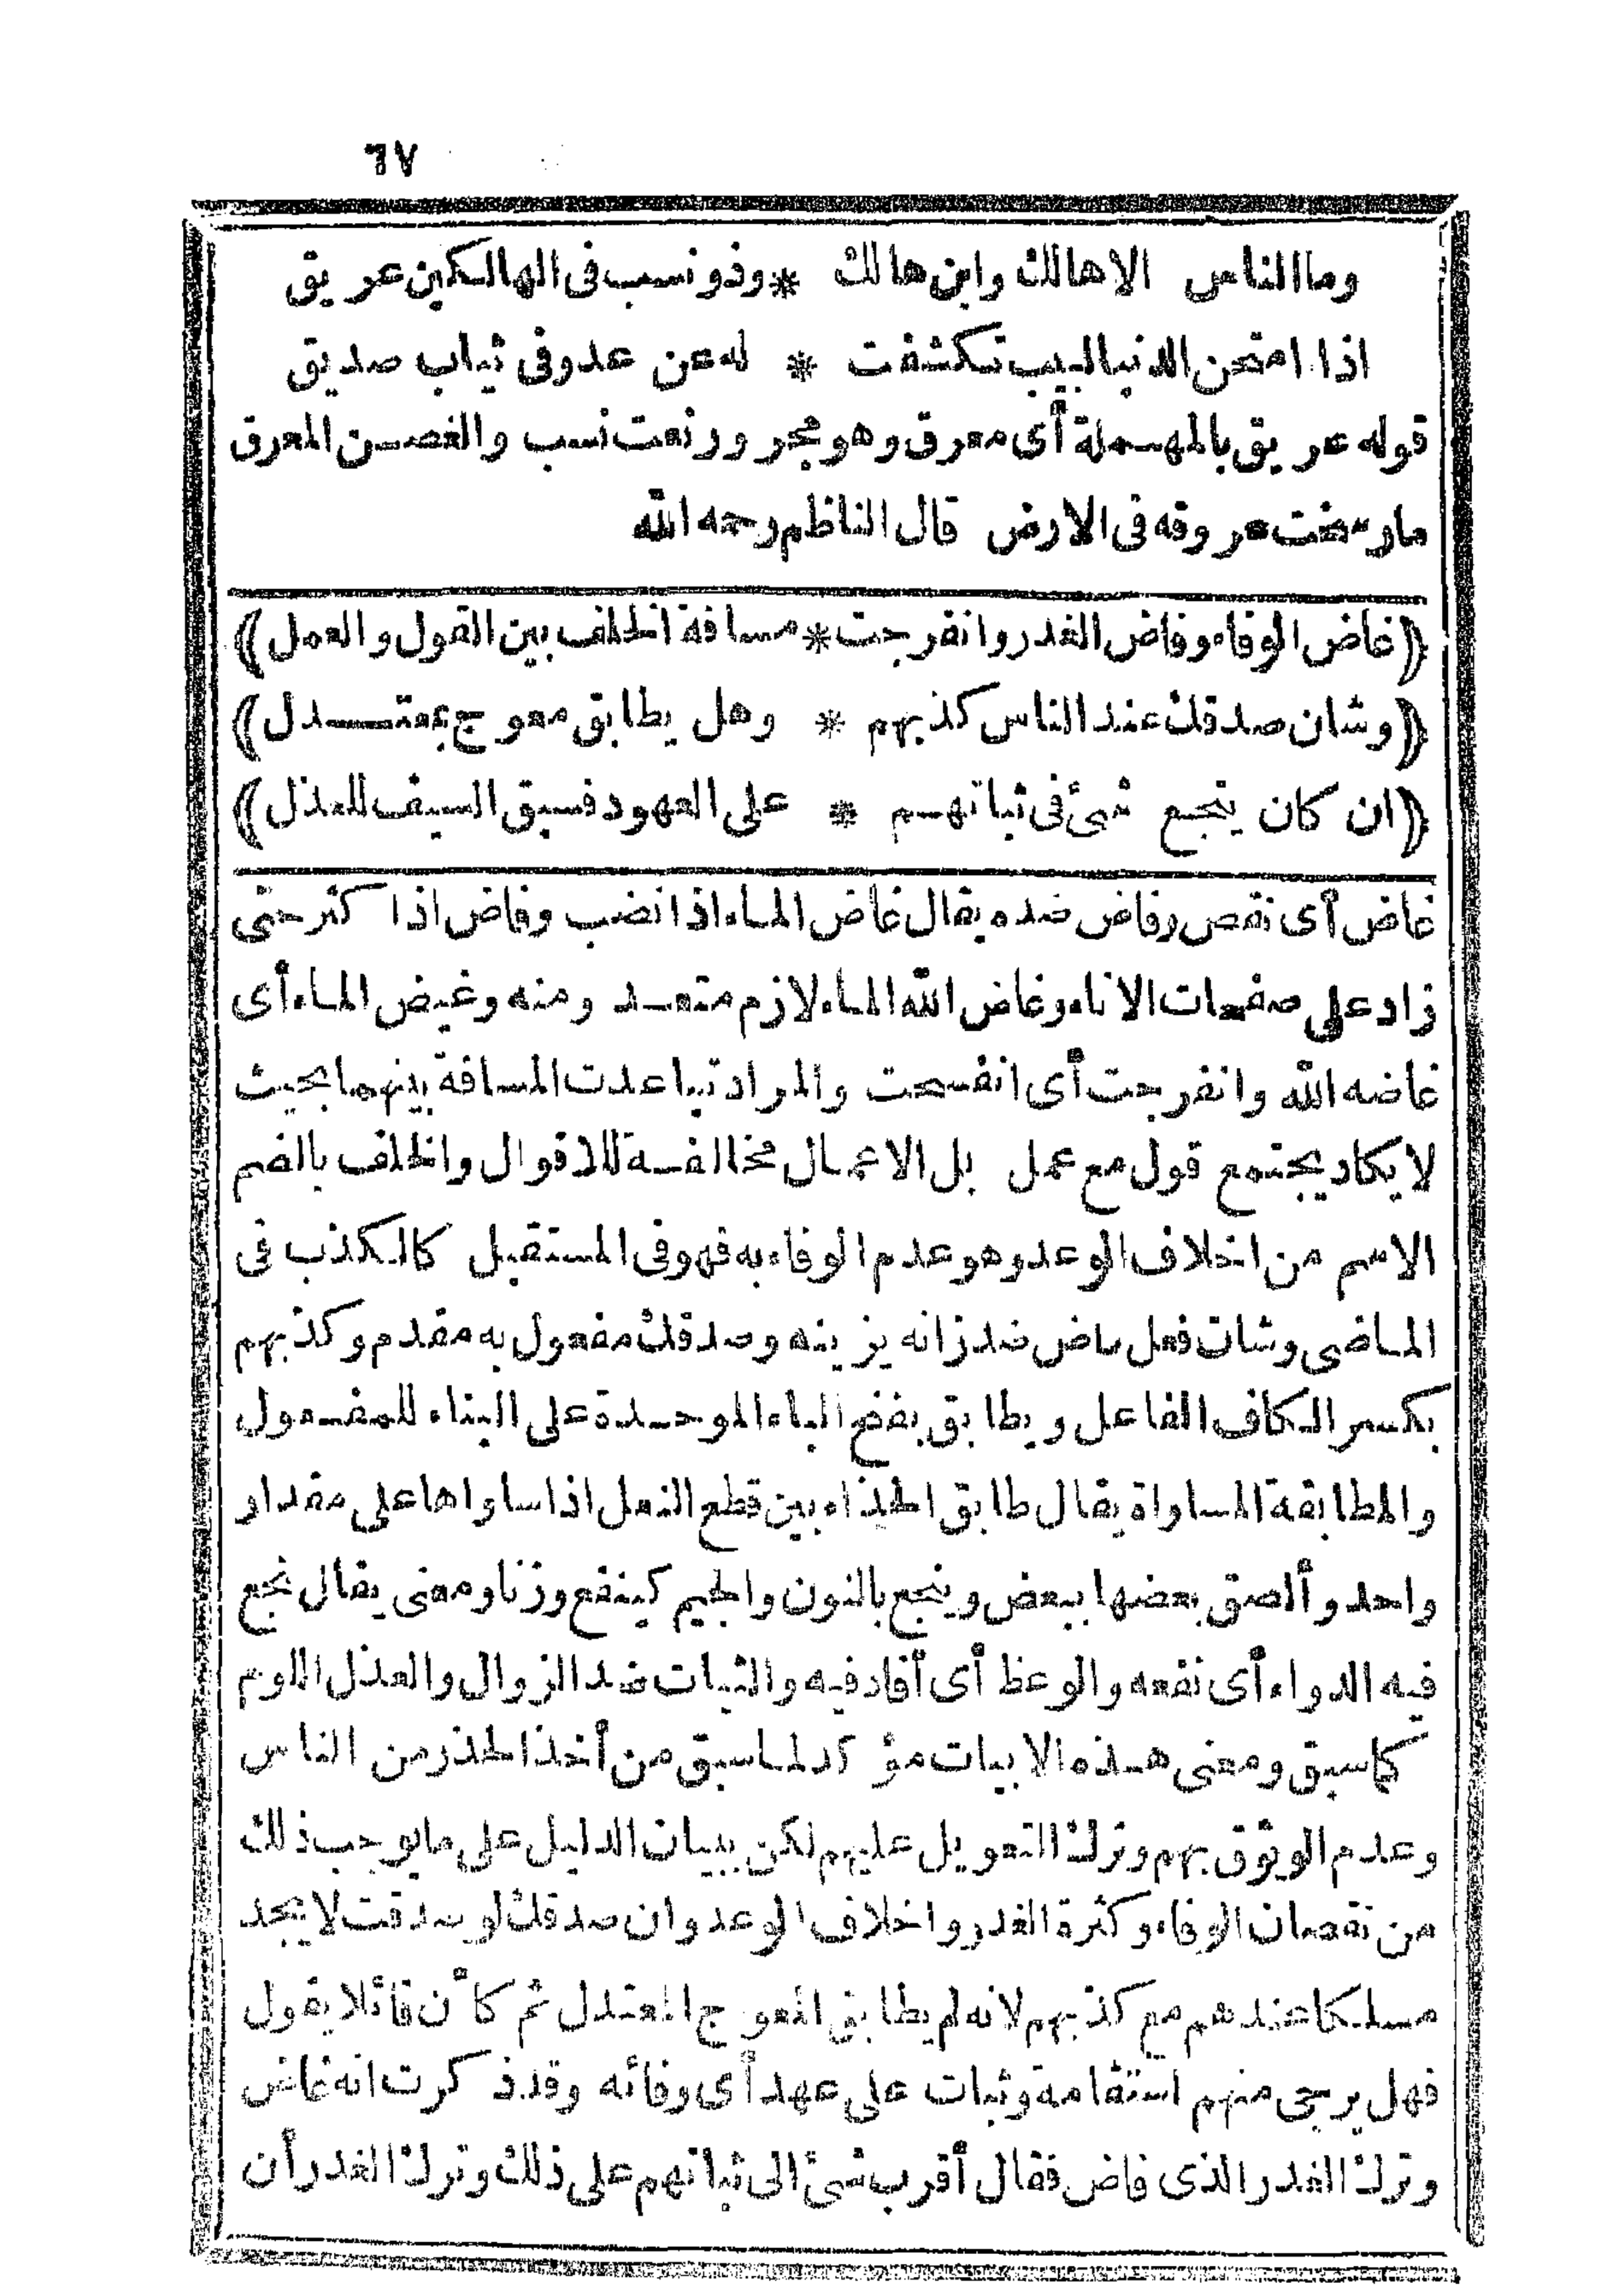 ٦٧
وما الناس الا هالك وابن هالك * وذو نسب فى الهالكين عريق
اذا امتحن الدنيا لبيب تكشفت * له عن عدو فى ثياب صديق
قوله عريق بالمهملة أى معرق وهو مجرور نعت نسب والغصن المعرق
مارسخت عروقه فى الارض قال الناظم رحمه الله
﴿غاض الوفاء وفاض الغدر وانفرجت * مسافة الخلف بين القول والعمل﴾
﴿وشان صدقك عند الناس كذبهم * وهل يطابق معوج بمعتدل﴾
﴿ان كان ينجع شئ فى ثباتهم * على العهود فسبق السيف للعذل﴾
غاض أى نقص وفاض ضده يقال غاض الماء اذا نضب وفاض اذا كثر حتى
زاد على صفحات الاناء وغاض الله الماء لازم متعد ومنه وغيض الماء أى
غاضه الله وانفرجت أى انفسحت والمراد تباعدت المسافة بينهما بحيث
لا يكاد يجتمع قول مع عمل بل الاعمال مخالفة للاقوال والخلف بالضم
الاسم من اخلاف الوعد وهو عدم الوفاء به فهو فى المستقبل كالكذب فى
الماضى وشان فعل ماض ضد زانه يزينه وصدقك مفعول به مقدم وكذبهم
بكسر الكاف الفاعل ويطابق بفتح الباء الموحدة على البناء للمفعول
والمطابقة المساواة يقال طابق الحذاء بين قطع النعل اذا ساواها على مقدار
واحد وألصق بعضها ببعض وينجع بالنون والجيم كينفع وزنا ومعنى يقال نجع
فيه الدواء أى نفعه والوعظ أى أفاد فيه والثبات ضد الزوال والعذل اللوم
كما سبق ومعنى هذه الابيات مؤكد لما سبق من أخذ الحذر من الناس
وعدم الوثوق بهم وترك التعويل عليهم لكن ببيان الدليل على ما يوجب ذلك
من نقصان الوفاء وكثرة الغدر واخلاف الوعد وان صدقك لو صدقت لا يجد
مسلكا عندهم مع كذبهم لانه لم يطابق المعوج المعتدل ثم كأن قائلا يقول
فهل يرجى منهم استقامة وثبات على عهد أى وفائه وقد ذكرت انه غاض
وترك الغدر الذى فاض فقال أقرب شئ الى ثباتهم على ذلك وترك الغدر أن